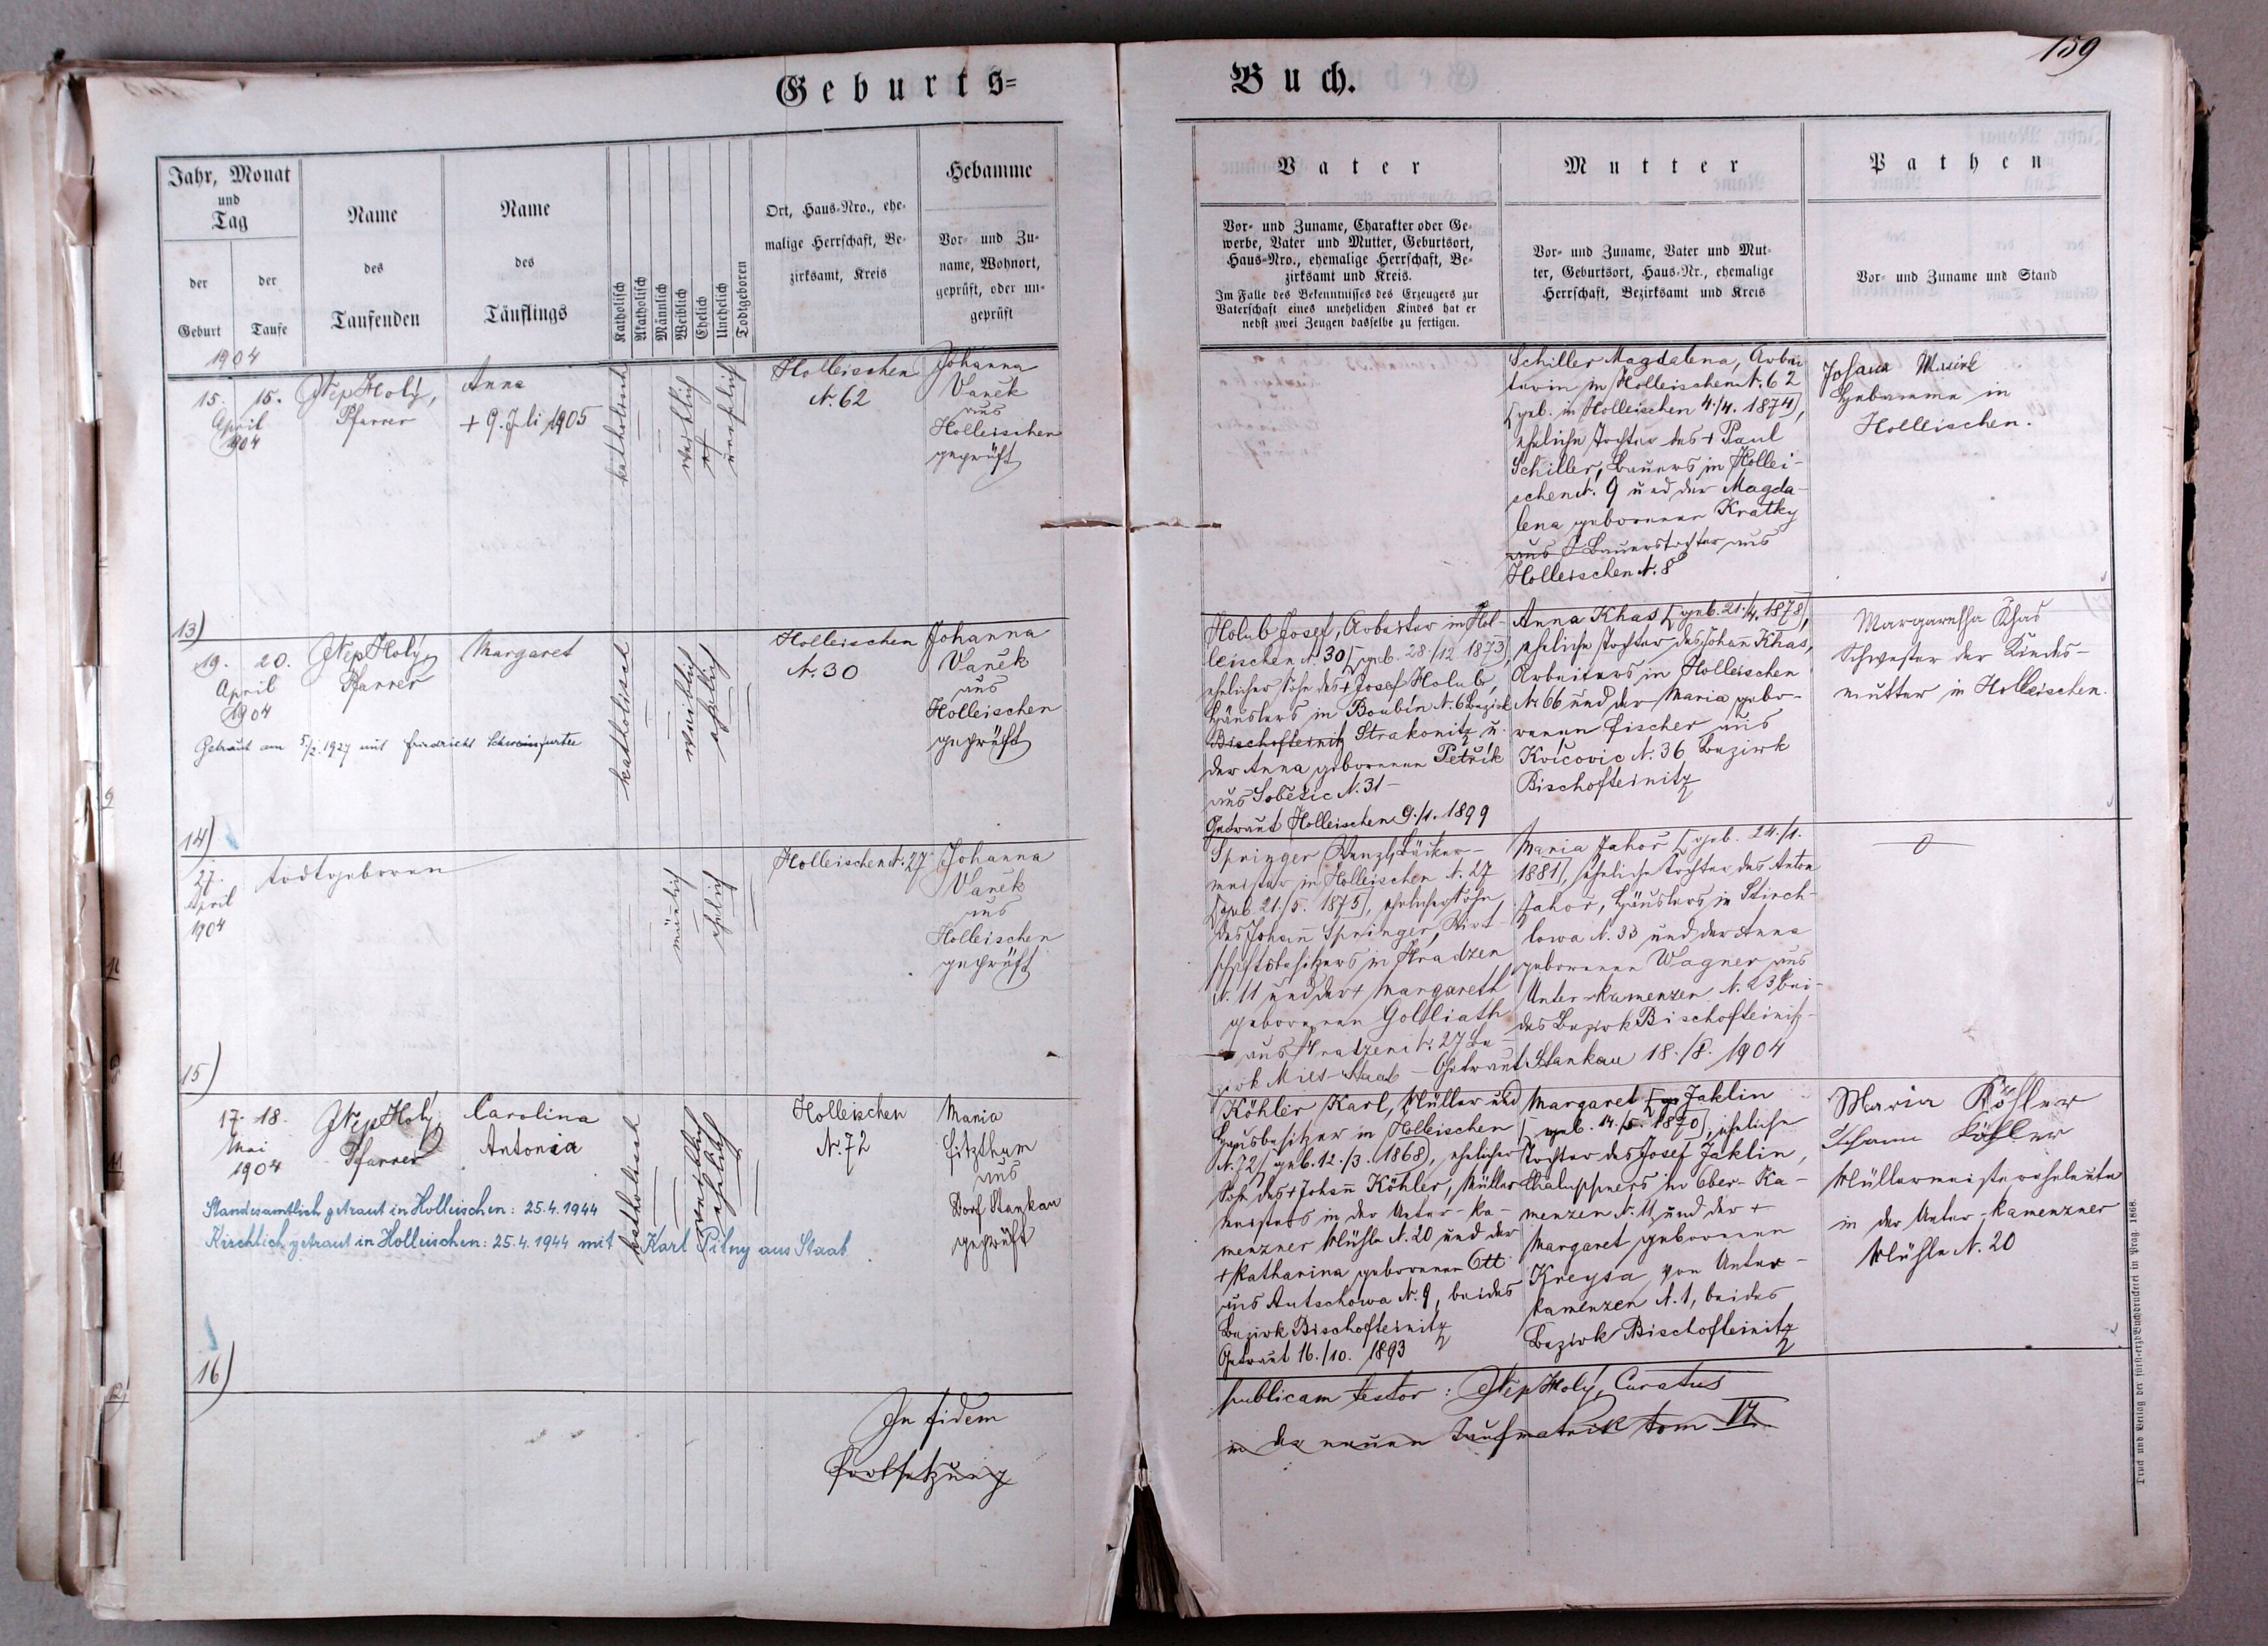 159
Geburts=
Buch.
Jahr, Monat
und
Tag
der
Geburt
der
Taufe
Name
des
Taufenden
Name
des
Täuflings
Katholisch
Akatholisch
Männlich
Weiblich
Ehelich
Unehelich
Todtgeboren
Ort, Haus=Nro., ehe=
malige Herrschaft, Be=
zirksamt, Kreis
Hebamme
Vor= und Zu=
name, Wohnort,
geprüft, oder un=
geprüft
Vater
Vor= und Zuname, Charakter oder Ge=
werbe, Vater und Mutter, Geburtsort,
Haus=Nro., ehemalige Herrschaft, Be=
zirksamt und Kreis.
Im Falle des Bekenntnisses des Erzeugers zur
Vaterschaft eines unehelichen Kindes hat er
nebst zwei Zeugen dasselbe zu fertigen.
Mutter
Vor= und Zuname, Vater und Mut=
ter, Geburtsort, Haus=Nr., ehemalige
Herrschaft, Bezirksamt und Kreis
Pathen
Vor= und Zuname und Stand
1904
15. 15.
April
1904
JNep Holý,
Pfarrer
Anna
+ 9. Juli 1905
katholisch
weiblich
unehelich
Holleischen
N. 62
Johanna
Vaněk
aus
Holleischen
geprüft
Schiller Magdalena, Arbei
terin in Holleischen N. 62
[geb. in Holleischen 4./4. 1874],
eheliche Tochter des + Paul
Schiller, Bauers in Hollei-
schen N. 9 und der Magda-
lena geborenen Kratky
aus Bauerstochter aus
Holleischen N. 8
Johana
Hebamme in
Holleischen.
13)
19. 20.
April
1904
JNep Holý,
Pfarrer
Margaret
Getraut am 5./2. 1927 mit Friedrich Schweinfurter
katholisch
weiblich
ehelich
Holleischen
N. 30
Johanna
Vaněk
aus
Holleischen
geprüft
Holub Josef, Arbeiter in Hol-
leischen N. 30 [geb. 28./12 1873],
ehelicher Sohn des + Josef Holub,
Häuslers in Boubin N. 6 Bezirk
Bischofteinitz Strakonitz u.
der Anna geborenen Petřík
aus Soběšic N. 31-
Getraut Holleischen 9./1. 1899
Anna Khas [geb. 21./4. 1878],
eheliche Tochter des Johann Khas,
Arbeiters in Holleischen
N. 66 und der Maria gebo-
renen Fischer aus
Kvíčovic N. 36 Bezirk
Bischofteinitz
Margaretha Khas
Schwester der Kindes-
mutter in Holleischen.
14)
27.
April
1904
todtgeboren
männlich
ehelich
Holleischen N. 27
Johanna
Vaněk
aus
Holleischen
geprüft
Springer Wenzl, Bäcker-
meister in Holleischen N. 27
[geb. 21./5. 1875], ehelicher Sohn
des Johann Springer, Wirt-
schaftsbesitzers in Hradzen
N. 11 und der + Margareth
geborenen Goldliath
aus Hradzen N. 27 Be-
zirk Mies-Staab - Getraut Stankau 18./8. 1904
Maria Jahor [geb. 24./1.
1881], eheliche Tochter des Anton
Jahor, Häuslers in Stirch-
lowa N. 33 und der Anna
geborenen Wagner aus
Unter-Kamenzen N. 23, bei-
des Bezirk Bischofteinitz-
15)
17. 18.
Mai
1904
JNep Holý,
Pfarrer
Carolina
Antonia
Standesamtlich getraut in Holleischen: 25.4.1944
Kirchlich getraut in Holleischen: 25.4.1944 mit Karl Pitny aus Staab
katholisch
weiblich
ehelich
Holleischen
N. 72
Maria
Fitzthum
aus
Dorf Stankau
geprüft
Köhler Karl, Müller und
Hausbesitzer in Holleischen
N. 72 [geb. 12./3. 1868], ehelicher
Sohn des + Johann Köhler, Müller
meisters in der Unter-Ka-
menzner Mühle N. 20 und der
+ Katharina geborenen Ott
aus Autschowa N. 9, beides
Bezirk Bischofteinitz
Getraut 16./10. 1893
Margaret Jaklin
[geb. 14./5. 1870], eheliche
Tochter des Josef Jaklin,
Chaluppners in Ober-Ka-
menzen N. 11 und der +
Margaret geborenen
Kreysa von Unter-
kamenzen N. 1, beides
Bezirk Bischofteinitz
Maria Köhler
Johann Köhler
Müllermeisterseheleute
in der Unter-Kamenzner
Mühle N. 20
16)
In fidem
publicam testor: JNep Holý, Curatus
Fortsetzung
in der neuen Taufmatrik tom VI.
Druck und Verlag der fürst=erzb. Buchdruckerei in Prag. 1868.